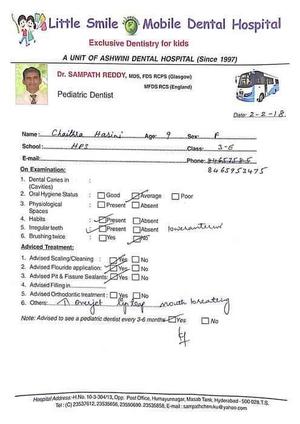 Little Smile Mobile Dental Hospital
Exclusive Dentistry for kids
A UNIT OF ASHWINI DENTAL HOSPITAL (Since 1997)
Dr. SAMPATH REDDY, MDS, FDS RCPS (Glasgow)
MFDS RCS (England)
Pediatric Dentist
Date: 2-2-18
Name: Chaitra Hasini Age: 9 Sex: F
School: HPS Class: 3-E
E-mail: Phone:
8465952475
On Examination:
1. Dental Caries in :
(Cavities)
2. Oral Hygiene Status : Good Average Poor
3. Physiological : Present Absent
Spaces
4. Habits : Present Absent
5. Irregular teeth : Present Absent
6. Brushing twice : Yes No
Adviced Treatment:
1. Advised Scaling/Cleaning : Yes No
2. Advised Flouride application: Yes No
3. Advised Pit & Fissure Sealants: Yes No
4. Advised Filling in
5. Advised Orthodontic treatment : Yes No
6. Others: overjet mouth breathing
Note: Advised to see a pediatric dentist every 3-6 months Yes No
Hospital Address: H.No. 10-3-304/13, Opp. Post Office, Humayunnagar, Masab Tank, Hyderabad - 500 028.T.S.
Tel: (C) 23537612, 23535656, 23550690. 23535858, E-mail : sampathchen.ku@yahoo.com